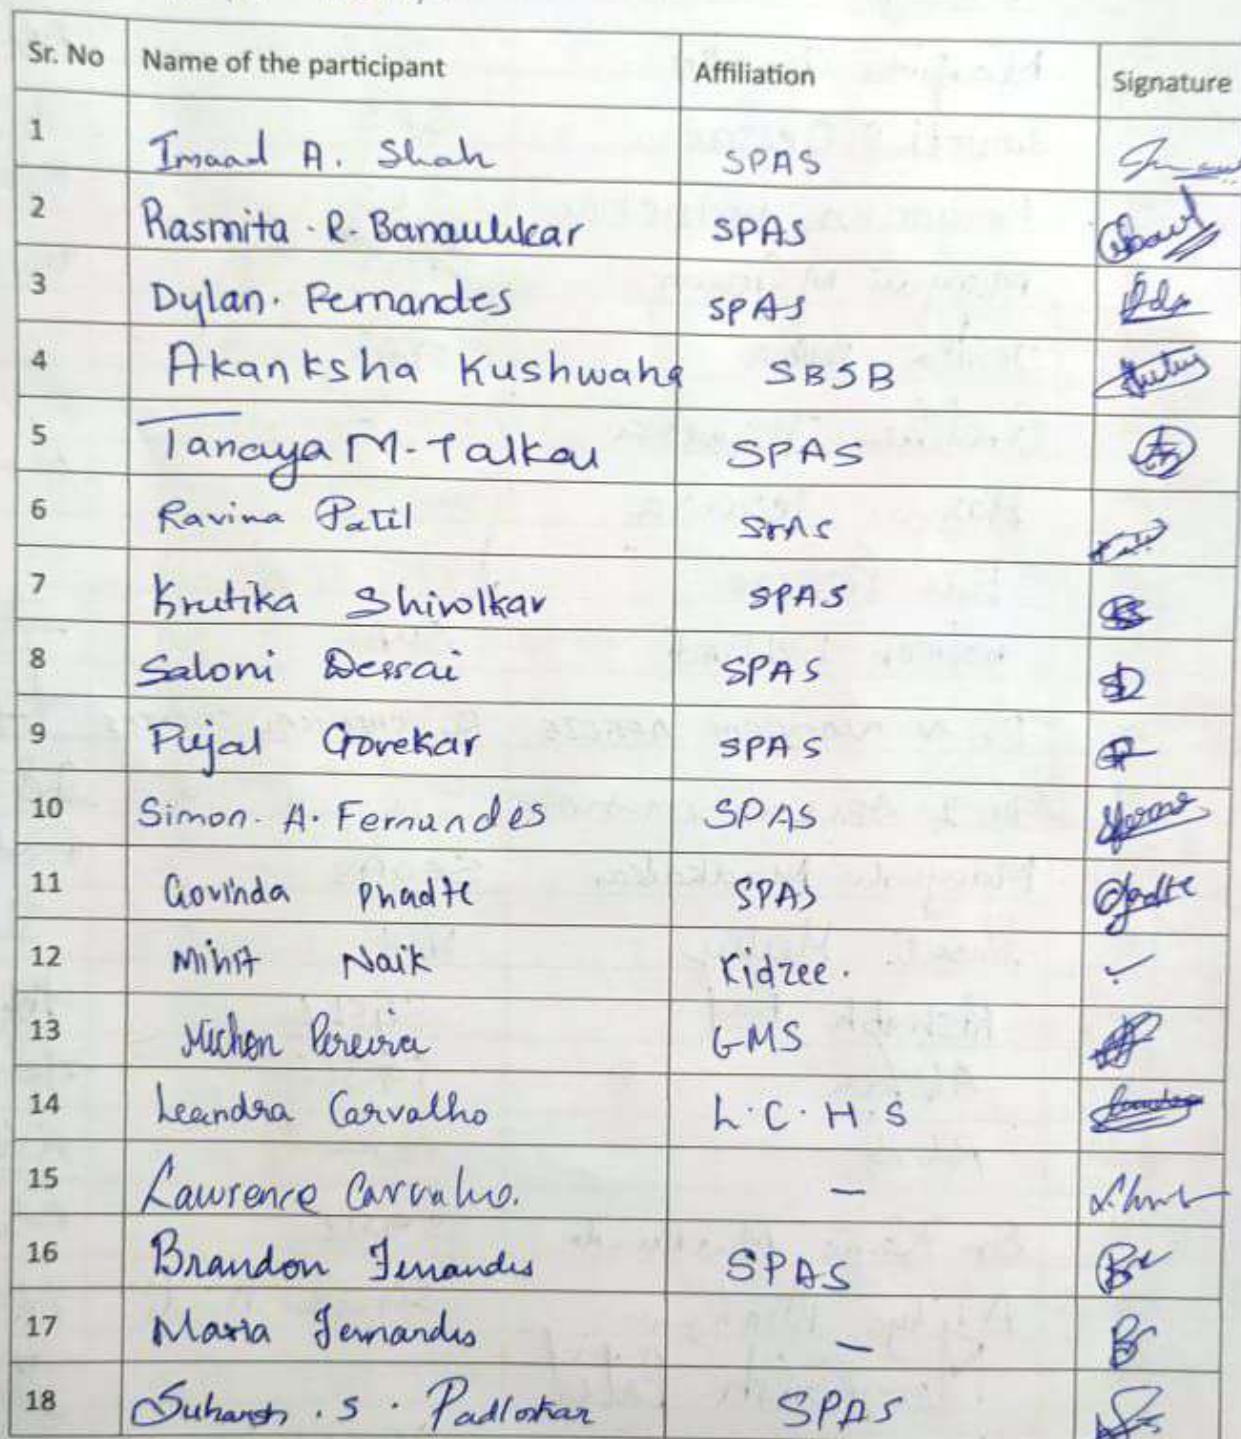 Sr. No Name of the participant Affiliation Signature
1 Imaad A. Shah SPAS
2 Rasmita . R. Banaulikar SPAS
3 Dylan. Fernandes SPAS
4 Akanksha Kushwaha SBSB
5 Tanaya M. Talkar SPAS
6 Ravina Patil SPAS
7 Krutika Shirolkar SPAS
8 Saloni Dessai SPAS
9 Pujal Govekar SPAS
10 Simon. A. Fernandes SPAS
11 Govinda Phadte SPAS
12 Naik Kidzee.
13 Pereira GMS
14 Leandra Carvalho L.C.H.S
15 Lawrence Carvalho. —
16 Brandon Fernandes SPAS
17 Maria Fernandes —
18 . S . SPAS